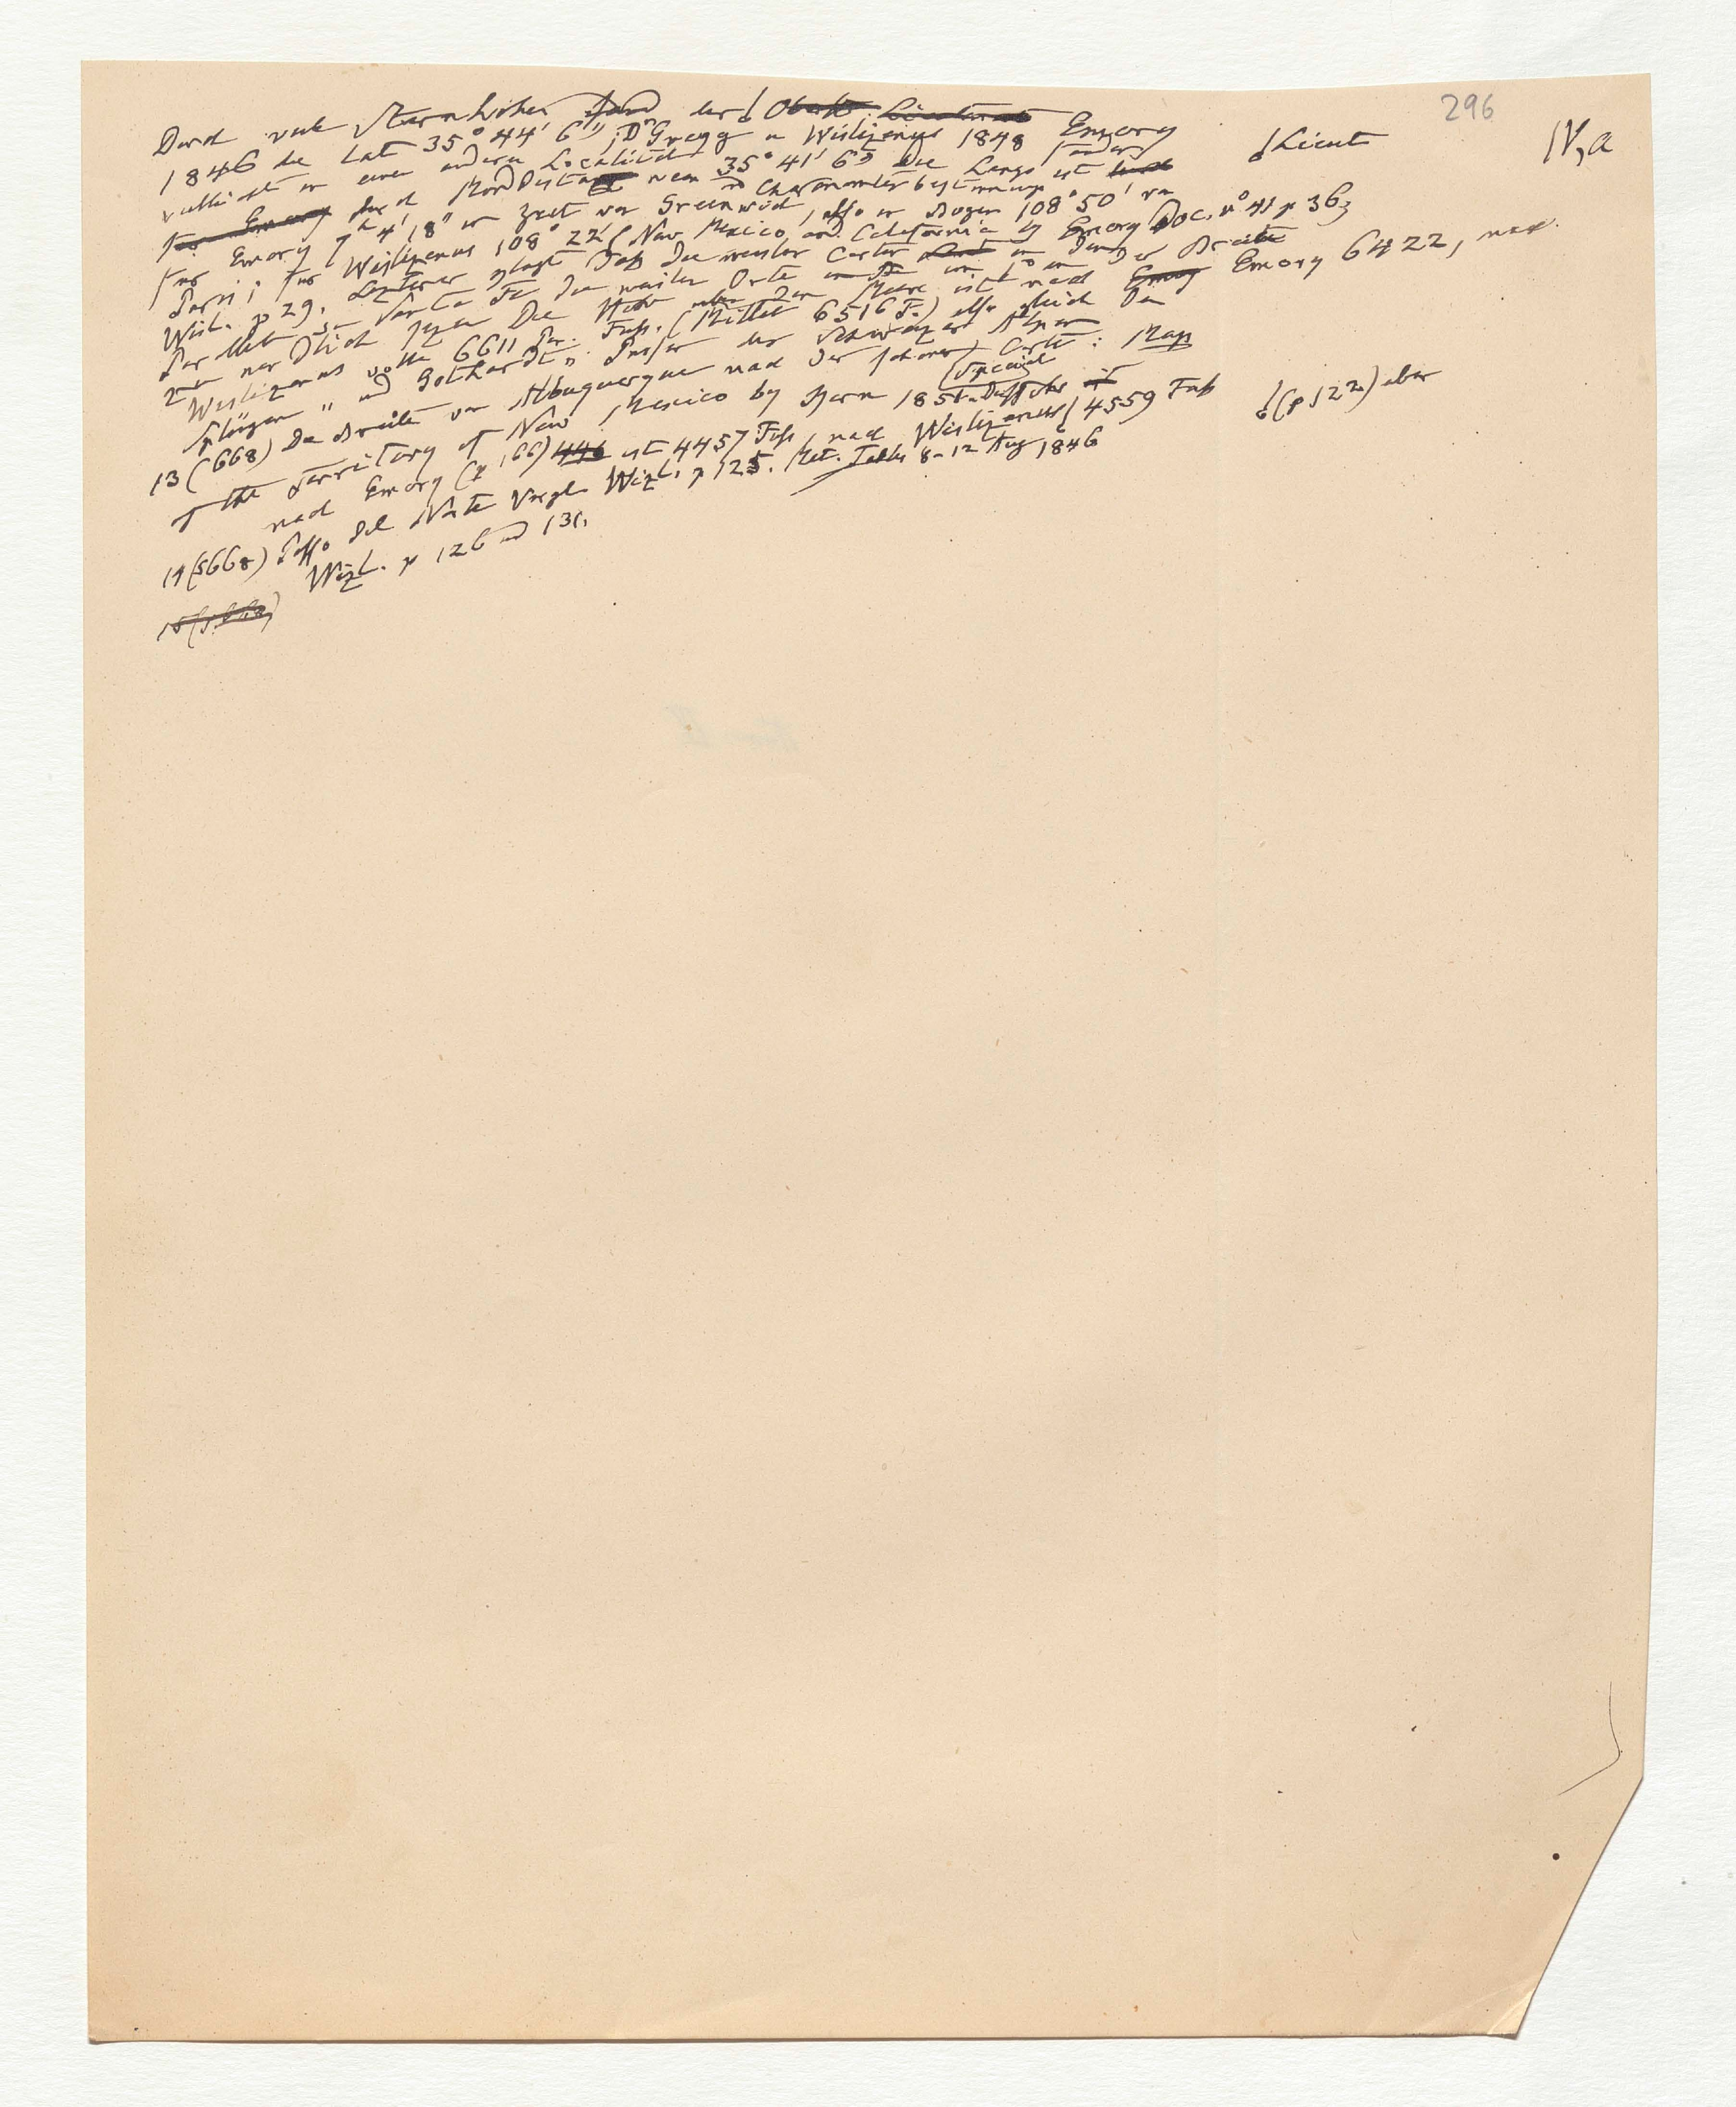 296
IV, a
Durch viele Sternhöhen fand der Obrist Lieutenant Emory
Lieut
1846 die Lat 35° 44' 6", Dr Gregg u Wislizenus 1848 fanden
vielleicht in einer andern Localität 35° 41' 6" Die Länge ist
für Emory durch Mond Distanz und Chronometerbestimmung
für Emory 7h 4' 18" in Zeit von Greenwich, also in Bogen 108° 50' von
Paris; für Wislizenus 108° 22' New Mexico and California by Emory Doc. n° 41 p 36;
Wisl. p 29. Letzterer klagt daß die meisten Carten in der Breite
der von Santa Fe die meisten Orte um
zu nördlich sezen Die Höhe über dem Meere ist nach Emory Emory 6422, nach
Wislizenus volle 6611 Par. Fuß. (Mittel 6516 F.) also gleich den
Splügen " und Gothardts Pässen der Schweizer Alpen
13 (668) Die Breite von Albuquerque nach der schönen Special Carte: Map
of the Territory of New Mexico by Kern 1851. Die Höhe ist
nach Emory (p 166) 446 ist 4457 Fuß, nach Wislizenus 4559 Fuß
(p 122) aber
14 (S 668) Paso del Norte Vergl. Wizl. p 125. Met. Tables 8-12 Aug 1846
Wizl. p 126 und 131.
15 (S 668)